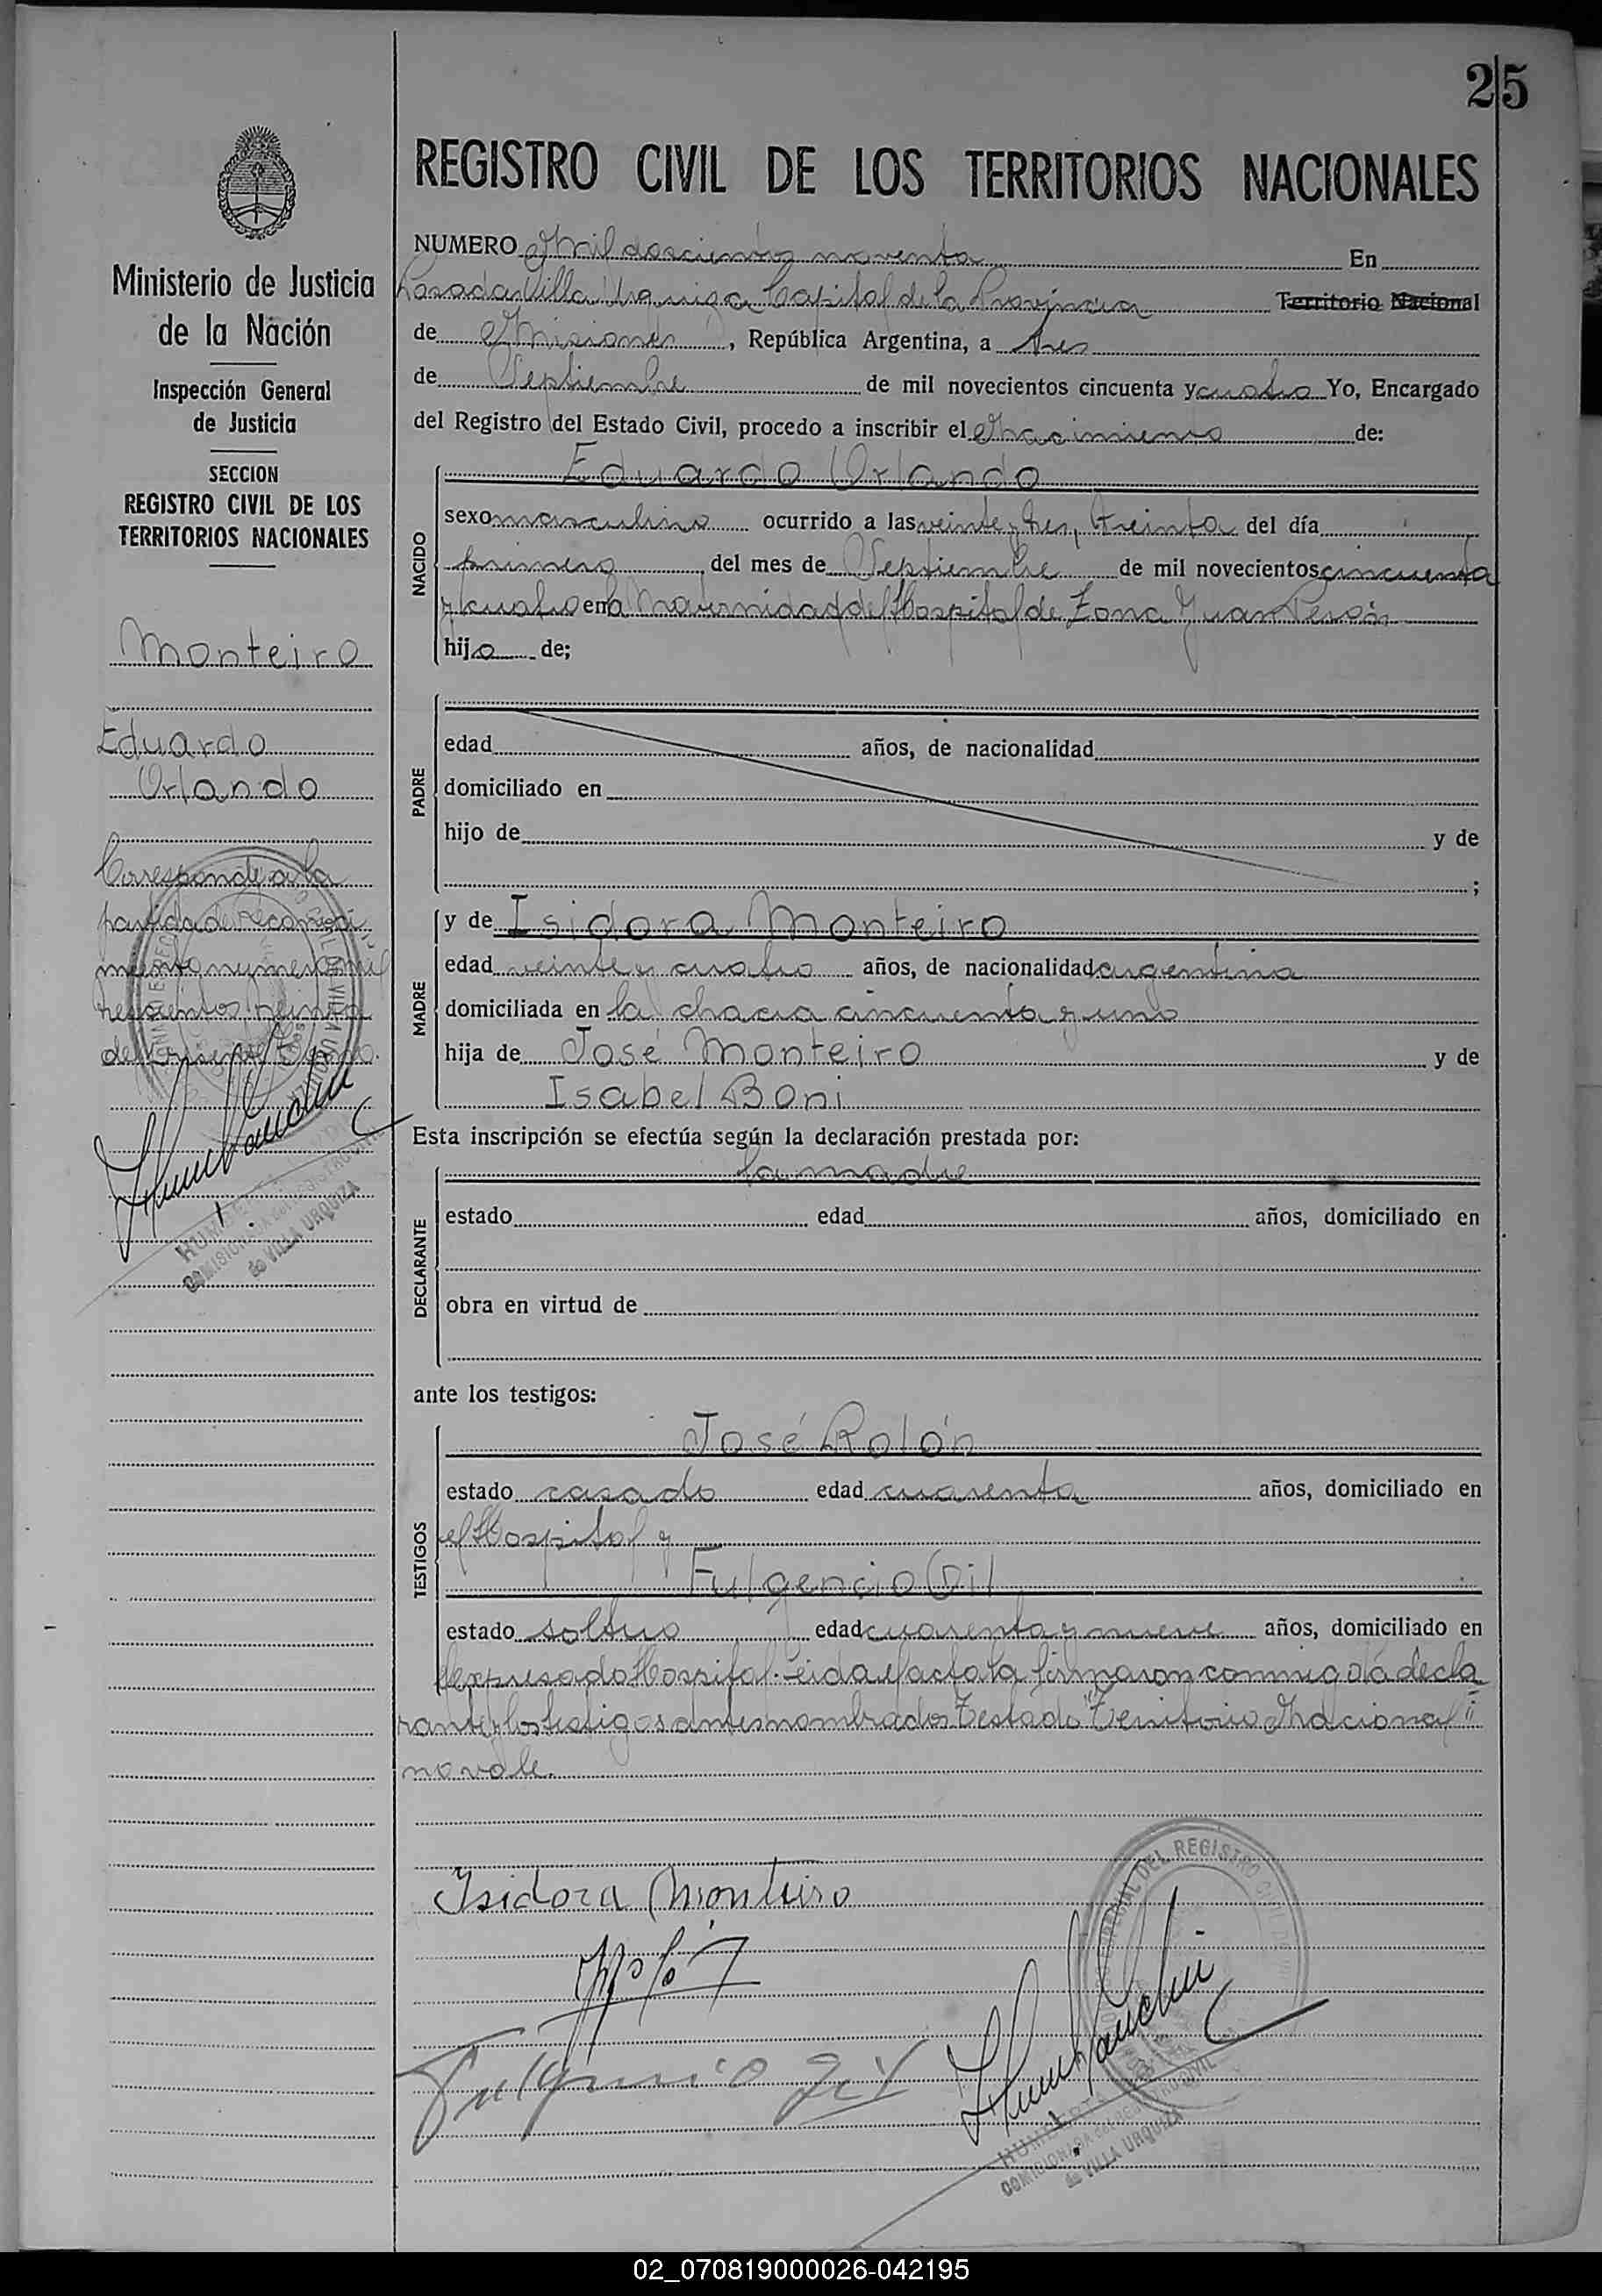 25
REGISTRO CIVIL DE LOS TERRITORIOS NACIONALES
Ministerio de Justicia
de la Nación
Inspección General
de Justicia
SECCION
REGISTRO CIVIL DE LOS
TERRITORIOS NACIONALES
Monteiro
Eduardo
Orlando
Corresponde a la
partida de reconoci
miento numero mil
trescientos
NUMERO Mil doscientos noventa En
Posadas Villa Urquiza Capital de la Provincia Territorio Nacional
de Misiones, República Argentina, a tres
de Septiembre de mil novecientos cincuenta y cuatro Yo, Encargado
del Registro del Estado Civil, procedo a inscribir el Nacimiento de:
NACIDO
Eduardo Orlando
sexo masculino ocurrido a las veinte y tres, treinta del día
primero del mes de Septiembre de mil novecientos cincuenta
y cuatro en la Maternidad del Hospital de Zona Juan Perón
hijo de;
PADRE
edad años, de nacionalidad
domiciliado en
hijo de y de
;
MADRE
y de Isidora Monteiro
edad veinte y cuatro años, de nacionalidad argentina
domiciliada en la chacra cincuenta y uno
hija de José Monteiro y de
Isabel Boni
Esta inscripción se efectúa según la declaración prestada por:
DECLARANTE
la madre
estado edad años, domiciliado en
obra en virtud de
ante los testigos:
TESTIGOS
José Rolón
estado casado edad cuarenta años, domiciliado en
el Hospital y
Fulgencio Gil
estado soltero edad cuarenta y nueve años, domiciliado en
el expresado Hospital. Leida el acta la firmaron conmigo la decla
rante y los testigos antes nombrados Testado "Territorio Nacional"
no vale.
Isidora Monteiro
Fulgencio Gil
DEL REGISTRO CIVIL
de VILLA URQUIZA
de VILLA URQUIZA
02_070819000026-042195